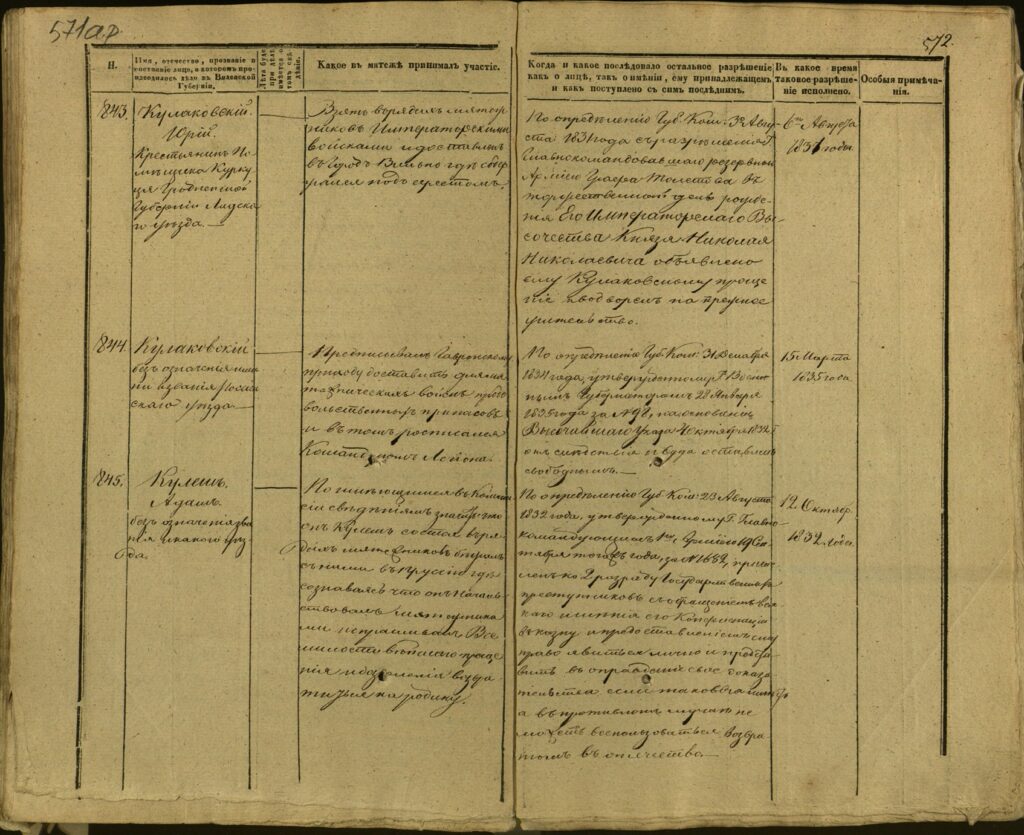 571 ад
572.
Н.
Имя, отечество, прозваніе и
состояніе лица, о которомъ про-
изводилось дѣло въ Виленской
Губерніи.
Лѣта буде
при дѣлѣ
имѣется о
томъ свѣ-
дѣніе.
Какое въ мятежѣ принималъ участіе.
Когда и какое послѣдовало остальное разрѣшеніе
какъ о лицѣ, такъ о имѣніи, ему принадлежащемъ
и какъ поступлено съ симъ послѣднимъ.
Въ какое время
таковое разрѣше-
ніе исполнено.
Особыя примѣча-
нія.
843.
Кулаковскій
Юрій.
Крестьянинъ По-
мѣщика Курку-
ля Гродненской
Губерніи Лидска-
го уѣзда.
Взятъ въ рядахъ мятеж-
никовъ Императорскими
войсками и доставленъ
въ Городъ Вильно гдѣ содер-
жался подъ арестомъ.
По опредѣленію Губ. Ком. Авгу-
ста 1831 года съ разрѣшенія Г.
Главнокомандовавшаго резервной
Арміею Графа Толстова въ
торжественной день рожде-
нія Его Императорскаго Вы-
сочества Князя Николая
Николаевича объявлено
ему Кулаковскому проще-
ніе и водворенъ на прежнее
жительство.
6го Августа
1831 года
844.
Кулаковскій
безъ означенія име-
ни и званія Россіен-
скаго уѣзда
Предписывалъ Гавронскому
приходу доставить для мя-
тежническихъ войскъ продо-
вольственныхъ припасовъ
и въ томъ росписался
Командующимъ
По опредѣленію Губ. Ком. 31 Декабря
1834 года, утвержденному Г. Воен-
нымъ Губернаторомъ 28 Января
1835 года за № 98, на основаніи
Высочайшаго Указа 4 Октября 1832 г.
отъ слѣдствія и суда оставленъ
свободнымъ.
15 Марта
1835 года
845.
Кулешъ
Адамъ.
безъ означенія зва-
нія и какого уѣз-
да.
По имѣющимся въ Комми-
сіи свѣдѣніямъ значитъ что
онъ Кулешъ состоя въ ря-
дахъ мятежниковъ бѣжалъ
съ ними въ Пруссію гдѣ
сознаваясь что онъ Начал-
ствовалъ мятежника-
ми испрашивалъ Все-
милостивѣйшаго проще-
нія и дозволенія возвра-
титься на родину.
По опредѣленію Губ. Ком. 23 Августа
1832 года, утвержденному Г. Главно-
командующимъ 1ю Арміею 19 Сен-
тября того же года, за № 1682, причи-
сленъ ко 2 разряду Государственныхъ
преступниковъ съ обращеніемъ вся-
каго имѣнія его Конфискаціи
въ казну и предоставленіемъ ему
право явиться лично и предста-
вить въ оправданіе свое доказа-
тельства если таковыя имѣетъ
а въ противномъ случаѣ не
можетъ воспользоваться возвра-
томъ въ отечество
12 Октября
1832 года